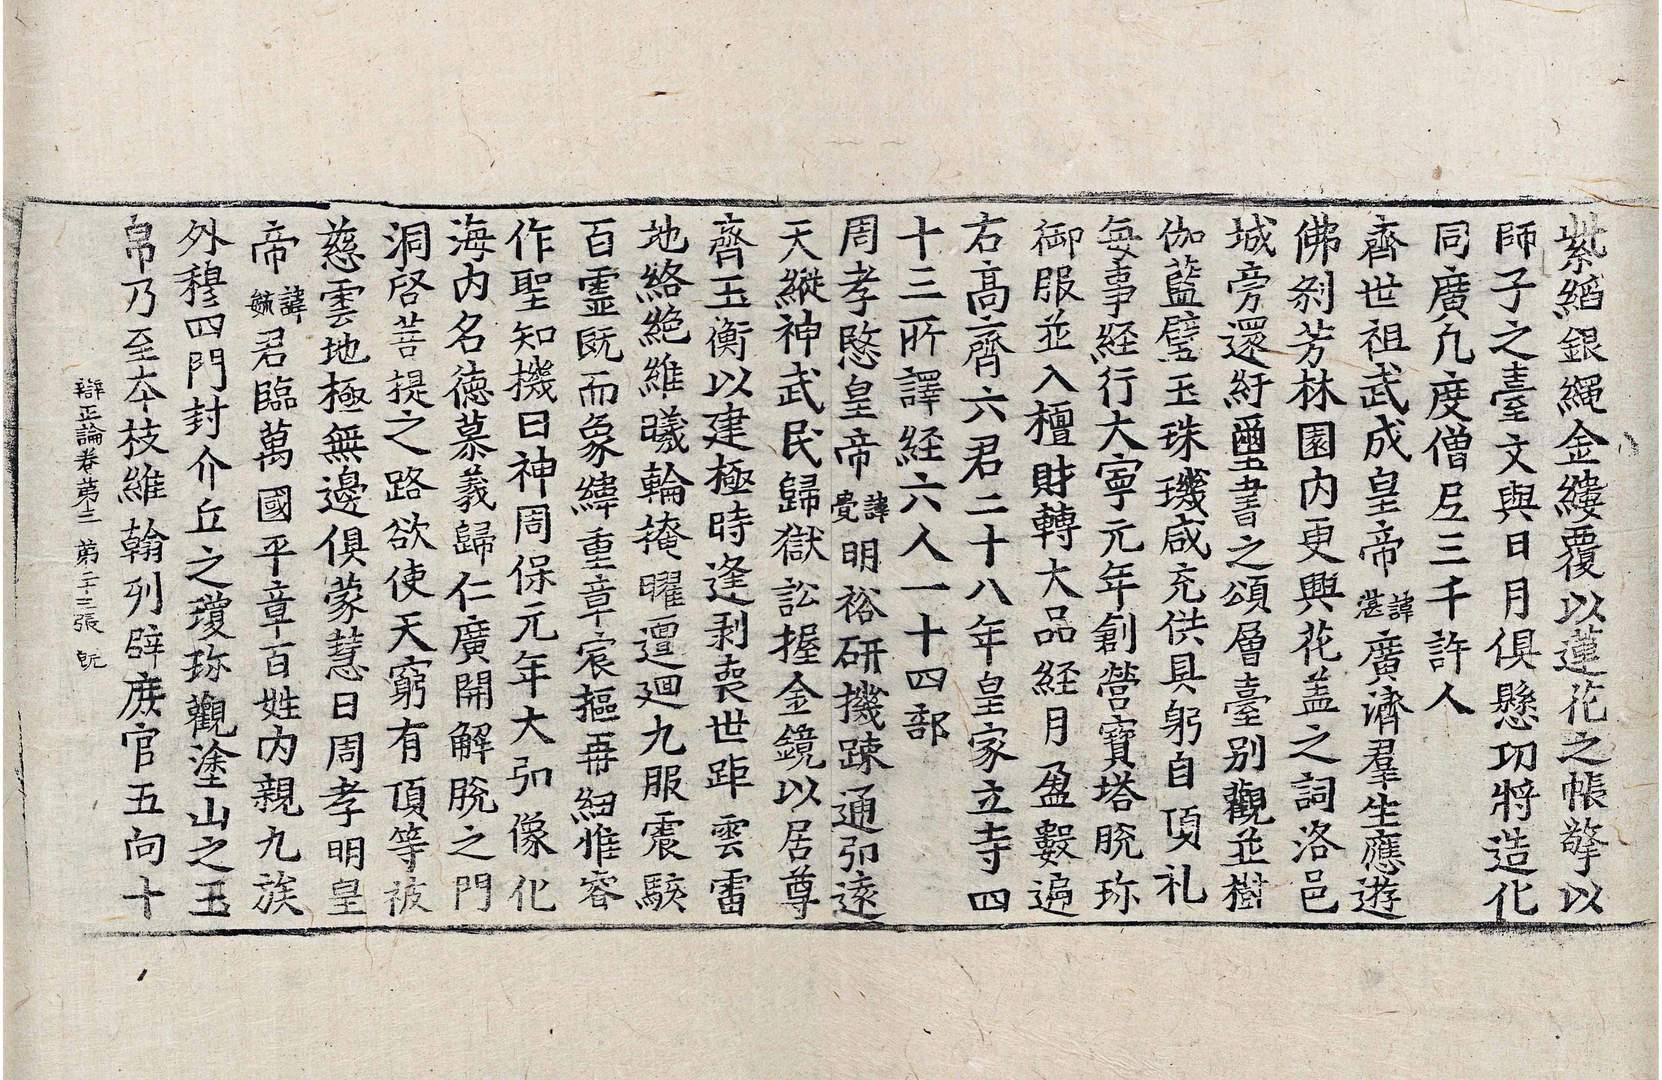 紫縚銀繩金縷覆以蓮花之帳擎以
師子之臺文與日月俱懸功將造化
同廣凡度僧尼三千許人
齊世祖武成皇帝諱湛廣濟羣生應遊
佛刹芳林園内更興花盖之詞洛邑
城旁還紆璽書之頌層臺别觀並樹
伽藍璧玉珠璣咸充供具躬自頂礼
每事経行大寧元年創營寶塔脫珎
御服並入檀財轉大品経月盈數遍
右高齊六君二十八年皇家立寺四
十三所譯経六人一十四部
周孝愍皇帝諱覺明裕研機踈通弘逺
天縱神武民歸獄訟握金鏡以居尊
齊玉衡以建極時逢剥喪世距雲雷
地絡絕維曦輪掩曜邅迴九服震駭
百靈既而象緯重章宸摳再紐惟睿
作聖知機曰神周保元年大弘像化
海内名德慕義歸仁廣開解脫之門
洞啓菩提之路欲使天窮有頂等被
慈雲地極無邊俱蒙慧日周孝明皇
帝諱毓君臨萬國平章百姓内親九族
外穆四門封介丘之瓊珎觀塗山之玉
帛乃至夲枝維翰列辟庶官五向十
辯正論卷第三 第二十三張 旣